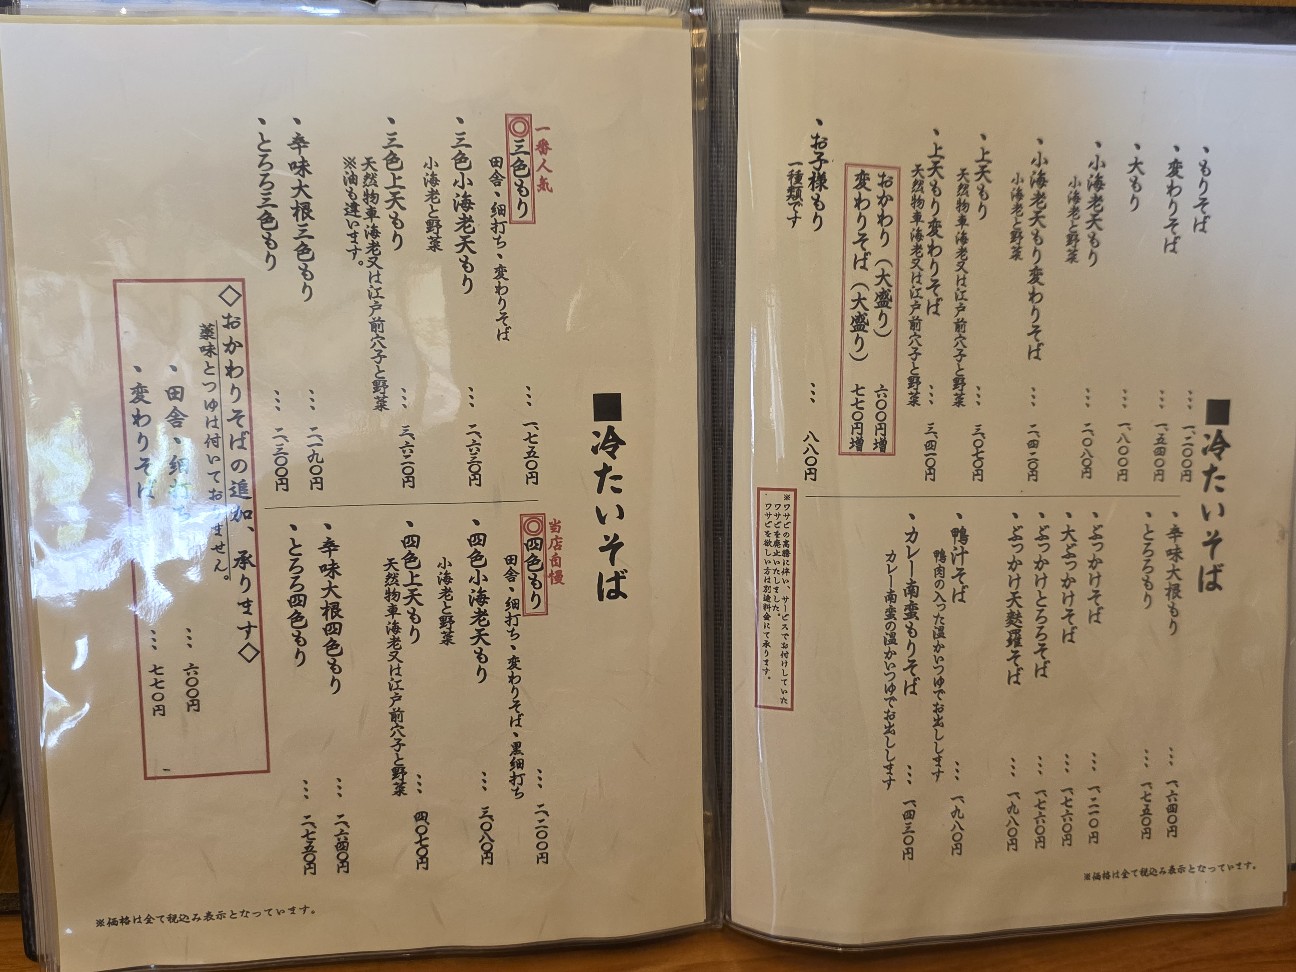 ■冷たいそば
・もりそば ……一、二〇〇円
・変わりそば ……一、五四〇円
・大もり ……一、八〇〇円
・小海老天もり ……二、〇八〇円
小海老と野菜
・小海老天もり変わりそば ……二、四二〇円
小海老と野菜
・上天もり ……三、〇七〇円
天然物車海老又は江戸前穴子と野菜
・上天もり変わりそば ……三、四一〇円
天然物車海老又は江戸前穴子と野菜
おかわり（大盛り） 六〇〇円増
変わりそば（大盛り） 七七〇円増
・お子様もり ……八八〇円
一種類です
・辛味大根もり ……一、六四〇円
・とろろもり ……一、七五〇円
・ぶっかけそば ……一、二一〇円
・大ぶっかけそば ……一、七六〇円
・ぶっかけとろろそば ……一、七六〇円
・ぶっかけ天麩羅そば ……一、九八〇円
・鴨汁そば ……一、九八〇円
鴨肉の入った温かいつゆでお出しします
・カレー南蛮もりそば ……一、四三〇円
カレー南蛮の温かいつゆでお出しします
※ワサビの高騰に伴い、サービスでお付けしていた
ワサビを廃止いたしました。
ワサビを欲しい方は別途料金にて承ります。
※価格は全て税込み表示となっています。
■冷たいそば
一番人気
◎三色もり ……一、七五〇円
田舎・細打ち・変わりそば
・三色小海老天もり ……二、六三〇円
小海老と野菜
・三色上天もり ……三、六二〇円
天然物車海老又は江戸前穴子と野菜
※油も違います。
・辛味大根三色もり ……二、一九〇円
・とろろ三色もり ……二、三〇〇円
当店自慢
◎四色もり ……二、二〇〇円
田舎・細打ち・変わりそば・黒細打ち
・四色小海老天もり ……三、〇八〇円
小海老と野菜
・四色上天もり ……四、〇七〇円
天然物車海老又は江戸前穴子と野菜
・辛味大根四色もり ……二、六四〇円
・とろろ四色もり ……二、七五〇円
◇おかわりそばの追加、承ります◇
薬味とつゆは付いておりません。
・田舎・細打ち ……六〇〇円
・変わりそば ……七七〇円
※価格は全て税込み表示となっています。